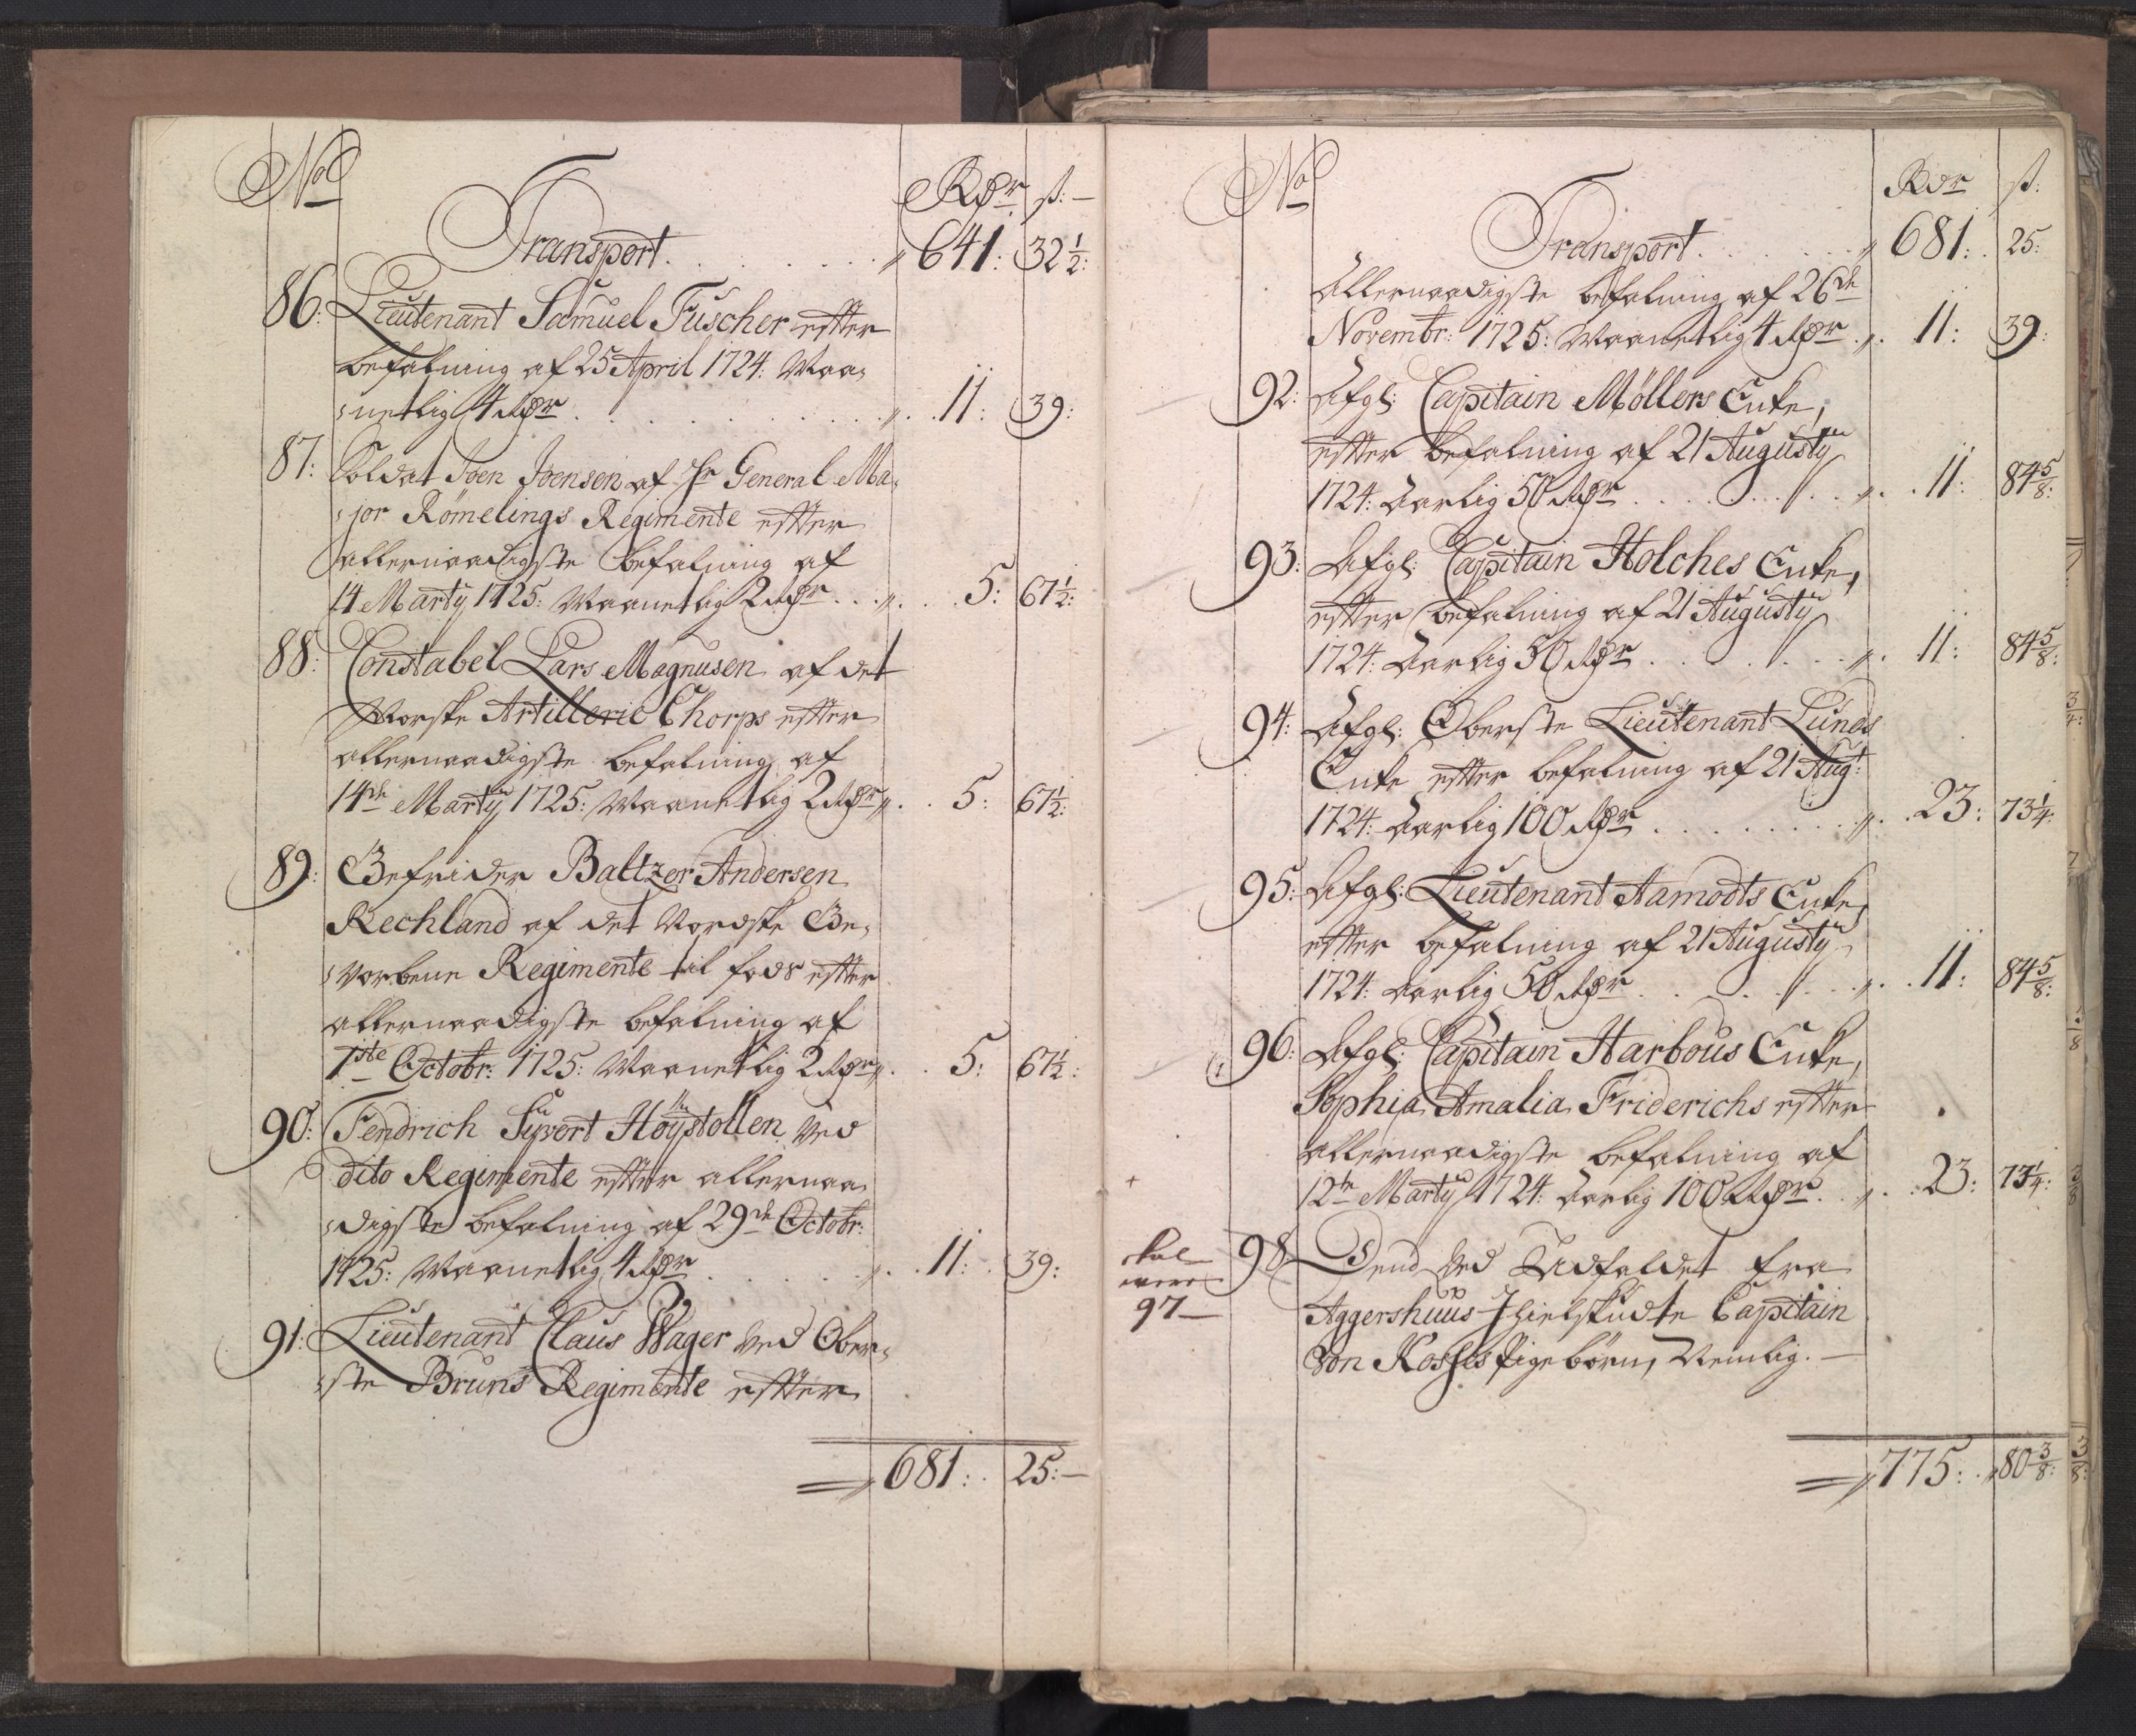 No
Rdr ß:
Transport. . . . . . . „ 641: 32 1/2:
86: Lieutenant Samuel Fuscher efter
befalning af 25 April 1724: Maa¸
¸netlig 4 Rdr . . . . . . . „. 11: 39:
87: Soldat Sven Svensen af Hr General Ma¸
¸jor Römelings Regimente efter
allernaadigste befalning af
14 Martÿ 1725: Maanetlig 2 Rdr . . „. . . 5: 67 1/2:
88: Constabel Lars Magnusen af det
Norske Artillerie Chorps efter
allernaadigste befalning af
14de Martÿ 1725: Maanetlig 2 Rdr „. . 5: 67 1/2:
89: Gefrider Baltzer Andersen
Rechland af det Nordske Ge¸
¸vorbene Regimente til fods efter
allernaadigste befalning af
1ste Octobr: 1725: Maanetlig 2 Rdr „. . 5: 67 1/2:
90: Fendrich Sÿvert Höÿstollen ved
dito Regimente efter allernaa¸
¸digste befalning af 29de Octobr:
1725: Maanetlig 4 Rdr . . . . . „. . 11: 39:
91: Lieutenant Claus Wager ved Ober¸
¸ste Bruns Regimente efter
= „ 681: . 25:—
No
Rdr ß:
Transport . . . . . . „ 681: . 25:
Allernaadigste befalning af 26de
Novembr: 1725: Maanetlig 4 Rdr . „. 11: 39:
92: Afgl: Capitain Möllers Enke,
efter befalning af 21 Augustÿ
1724: Aarlig 50 Rdr . . . . . . „. . 11: 84 5/8:
93: Afgl: Capitain Holches Enke,
efter befalning af 21 Augustÿ
1724: Aarlig 50 Rdr . . . . . . „. 11: 84 5/8:
94: Afgl: Oberste Lieutenant Lunds
Enke efter befalning af 21 Augt:
1724: Aarlig 100 Rdr . . . . . . „. . 23: 73 1/4:
95: Afgl: Lieutenant Aamodts Enke,
efter befalning af 21 Augustÿ
1724: Aarlig 50 Rdr . . . . . „. . 11: 84 5/8:
96: Afgl: Capitain Harbous Enke,
Sophia Amalia Friderichs efter
allernaadigste befalning af
+ 12te Martÿ 1724: Aarlig 100 Rdr . . „. . 23: 73 1/4:
skal
være
97—
98 Dend ved Udfaldet fra
Aggershuus Ihielskudte Capitain
Von Kosses Pigebörn, Nemlig. —
= „ 775: . „ 80 3/8: